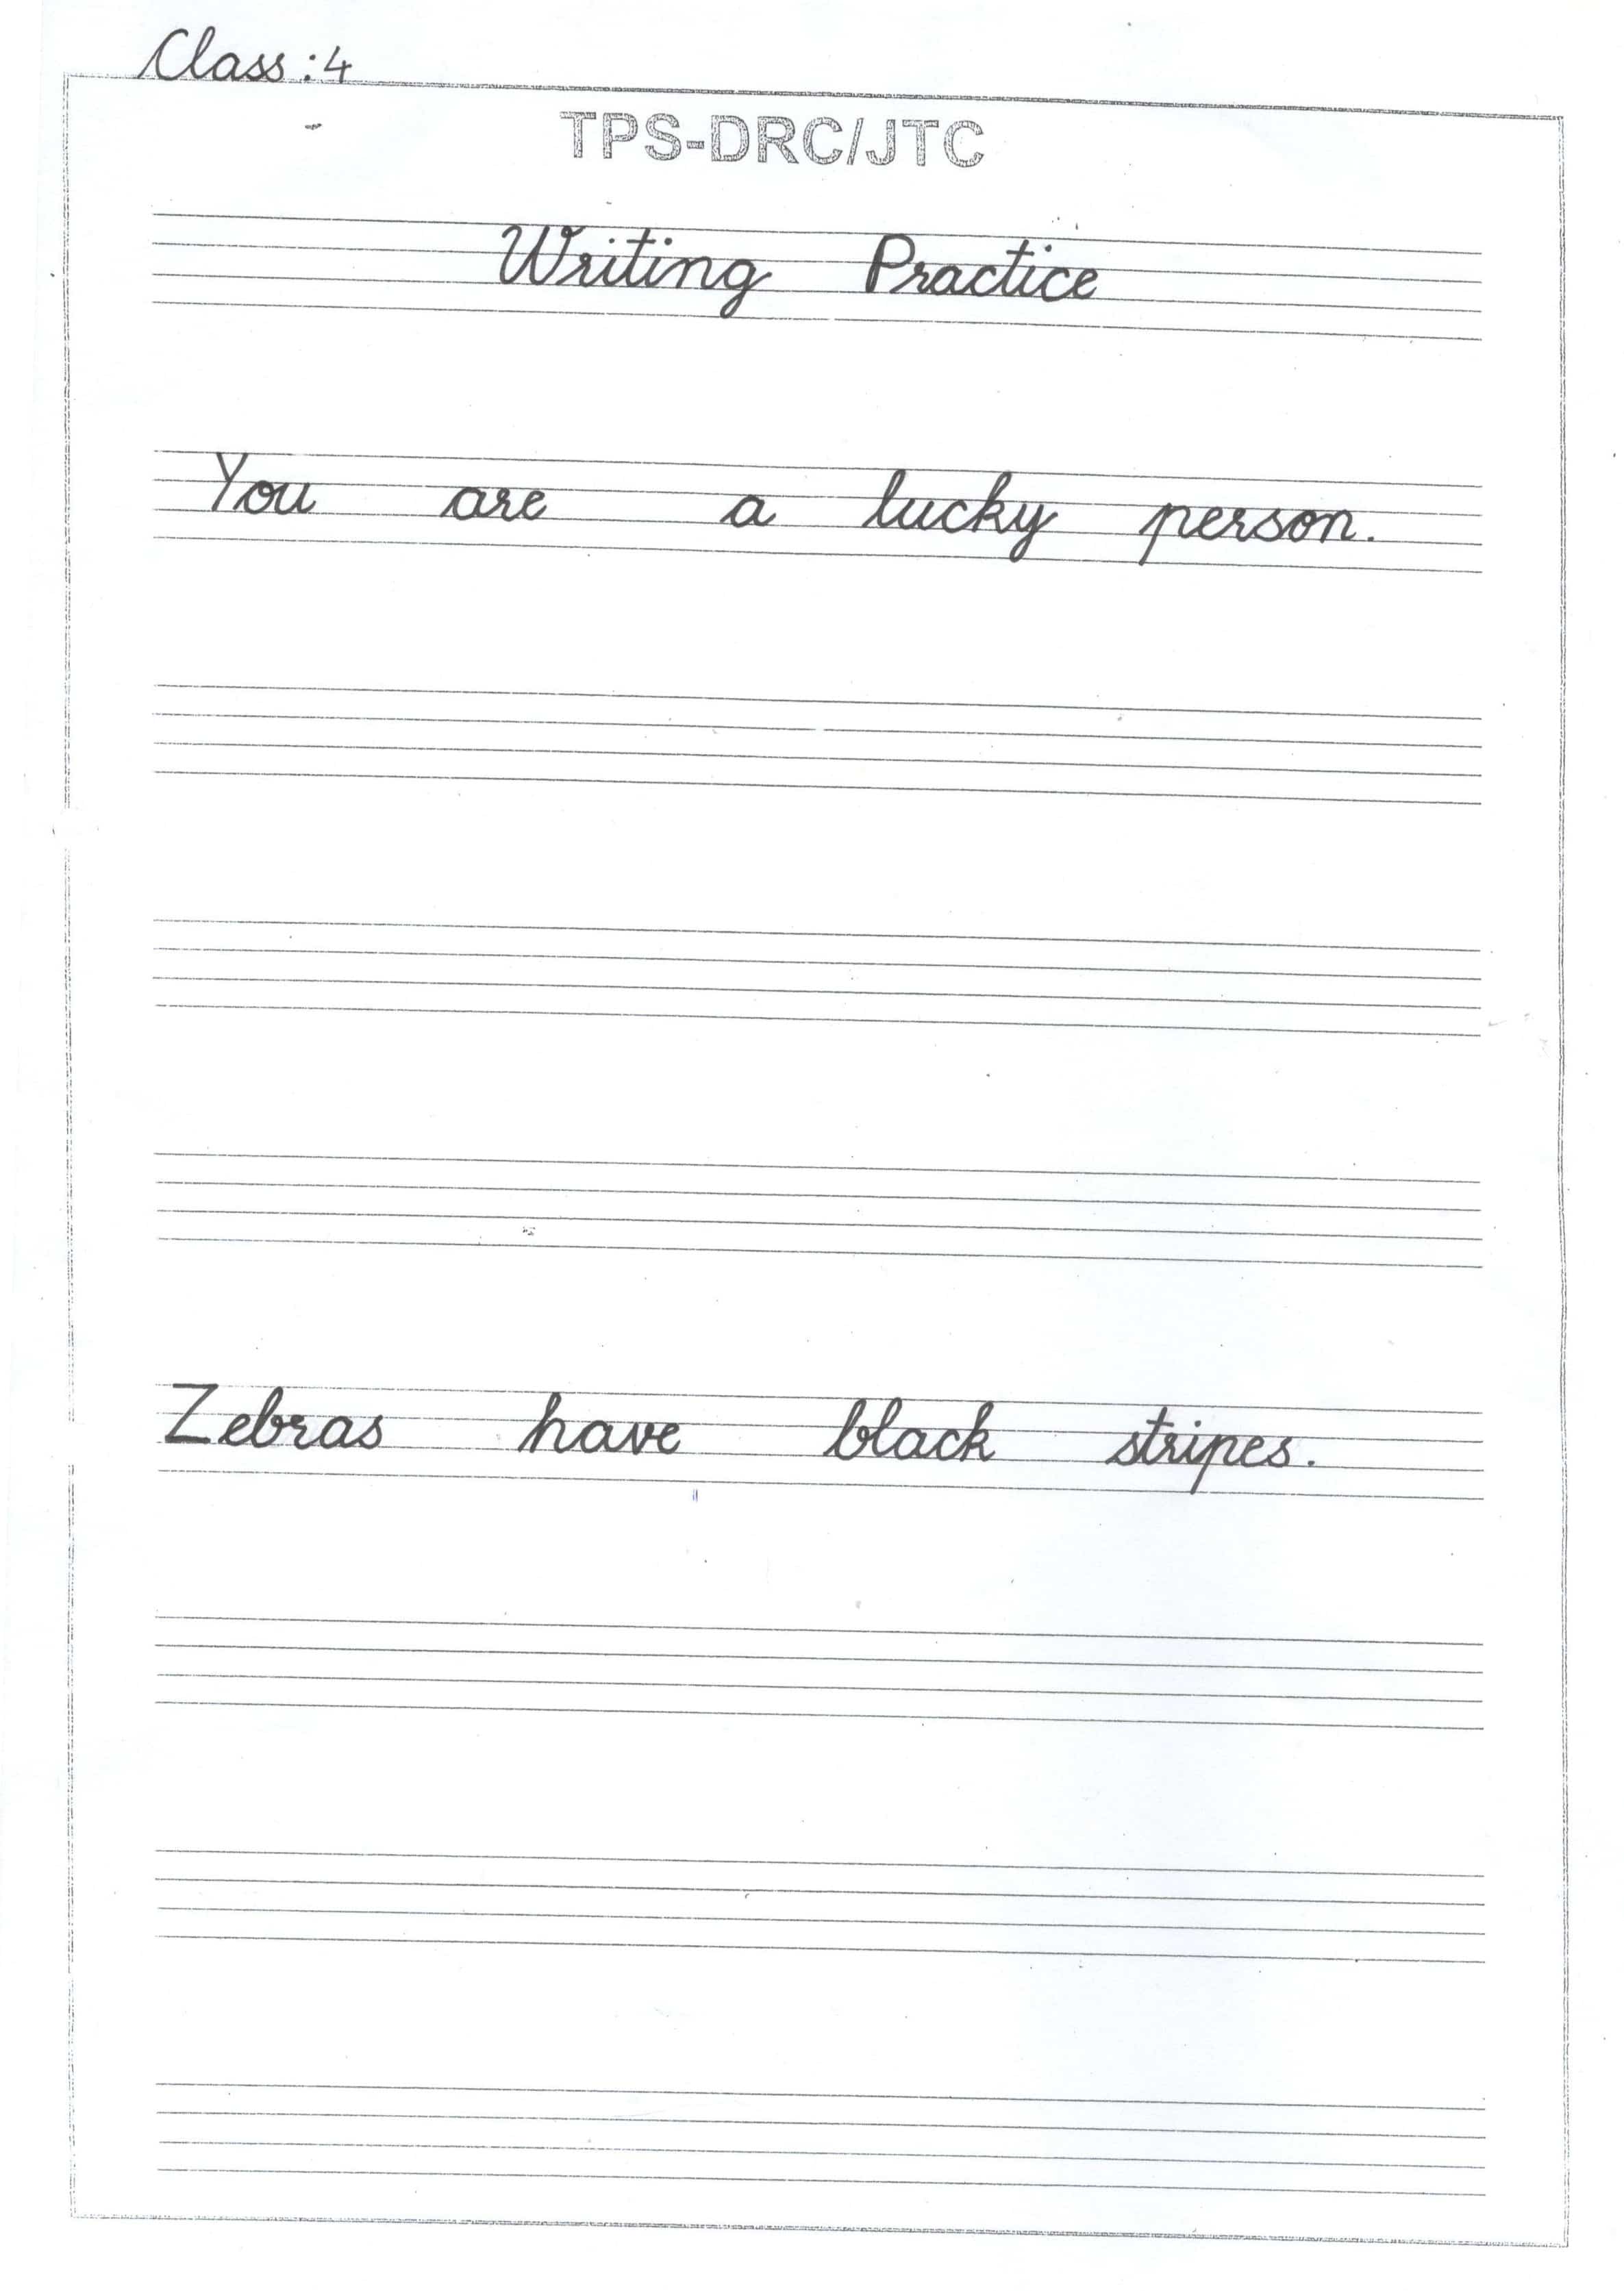 Class : 4
TPS-DRC/JTC
Writing Practice
You are a lucky person.
Zebras have black stripes.